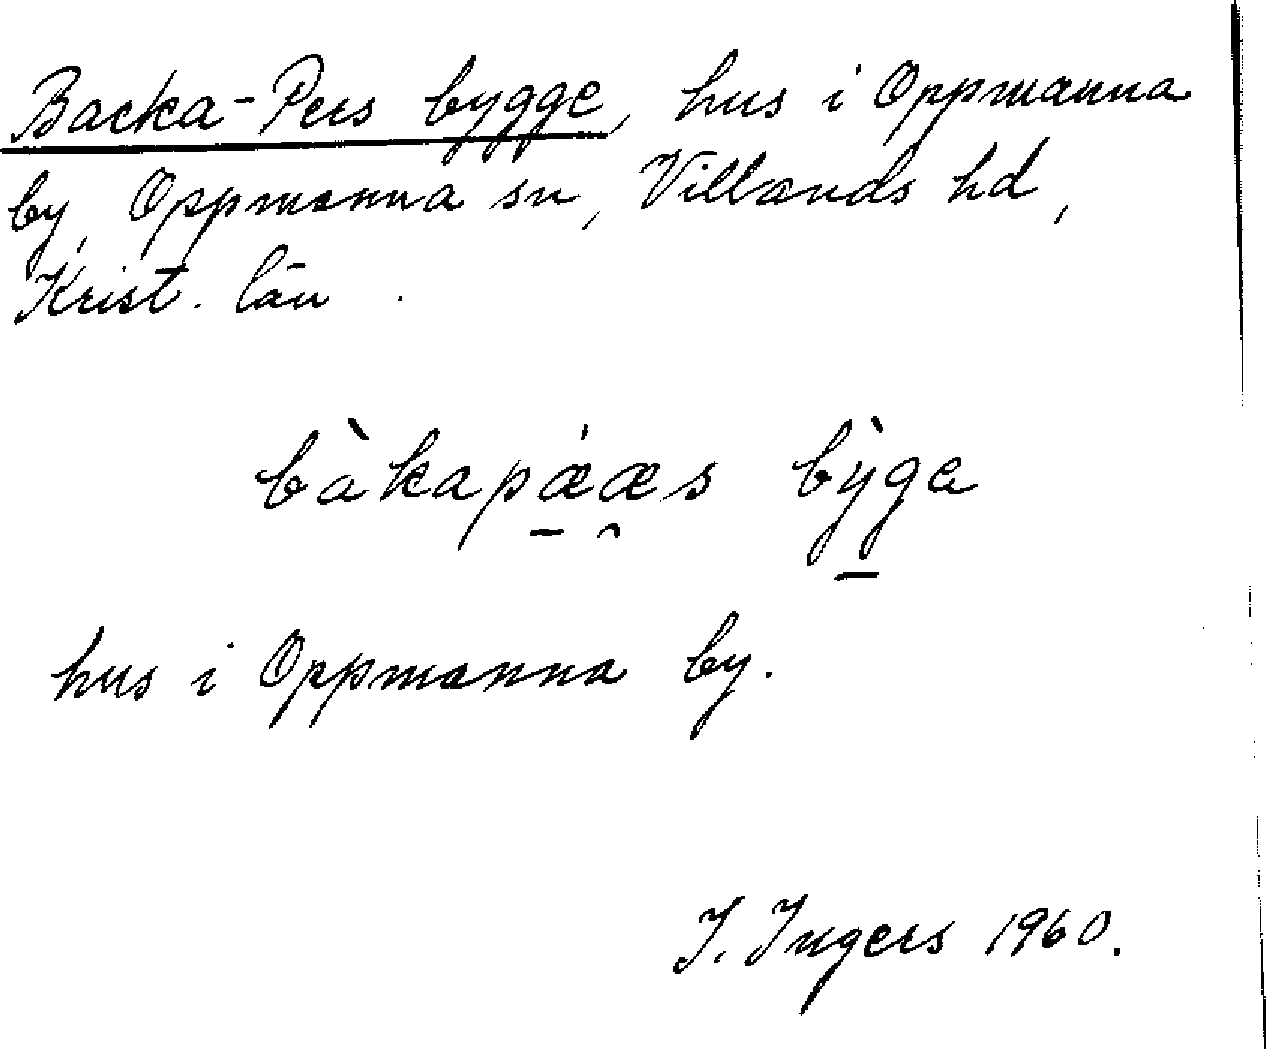 Backa-Pers bygge, hus i Oppmanna
by, Oppmanna sn, Villands hd,
Krist. län.
bàkapǽæs bỳga
hus i Oppmanna by.
I. Ingers 1960.